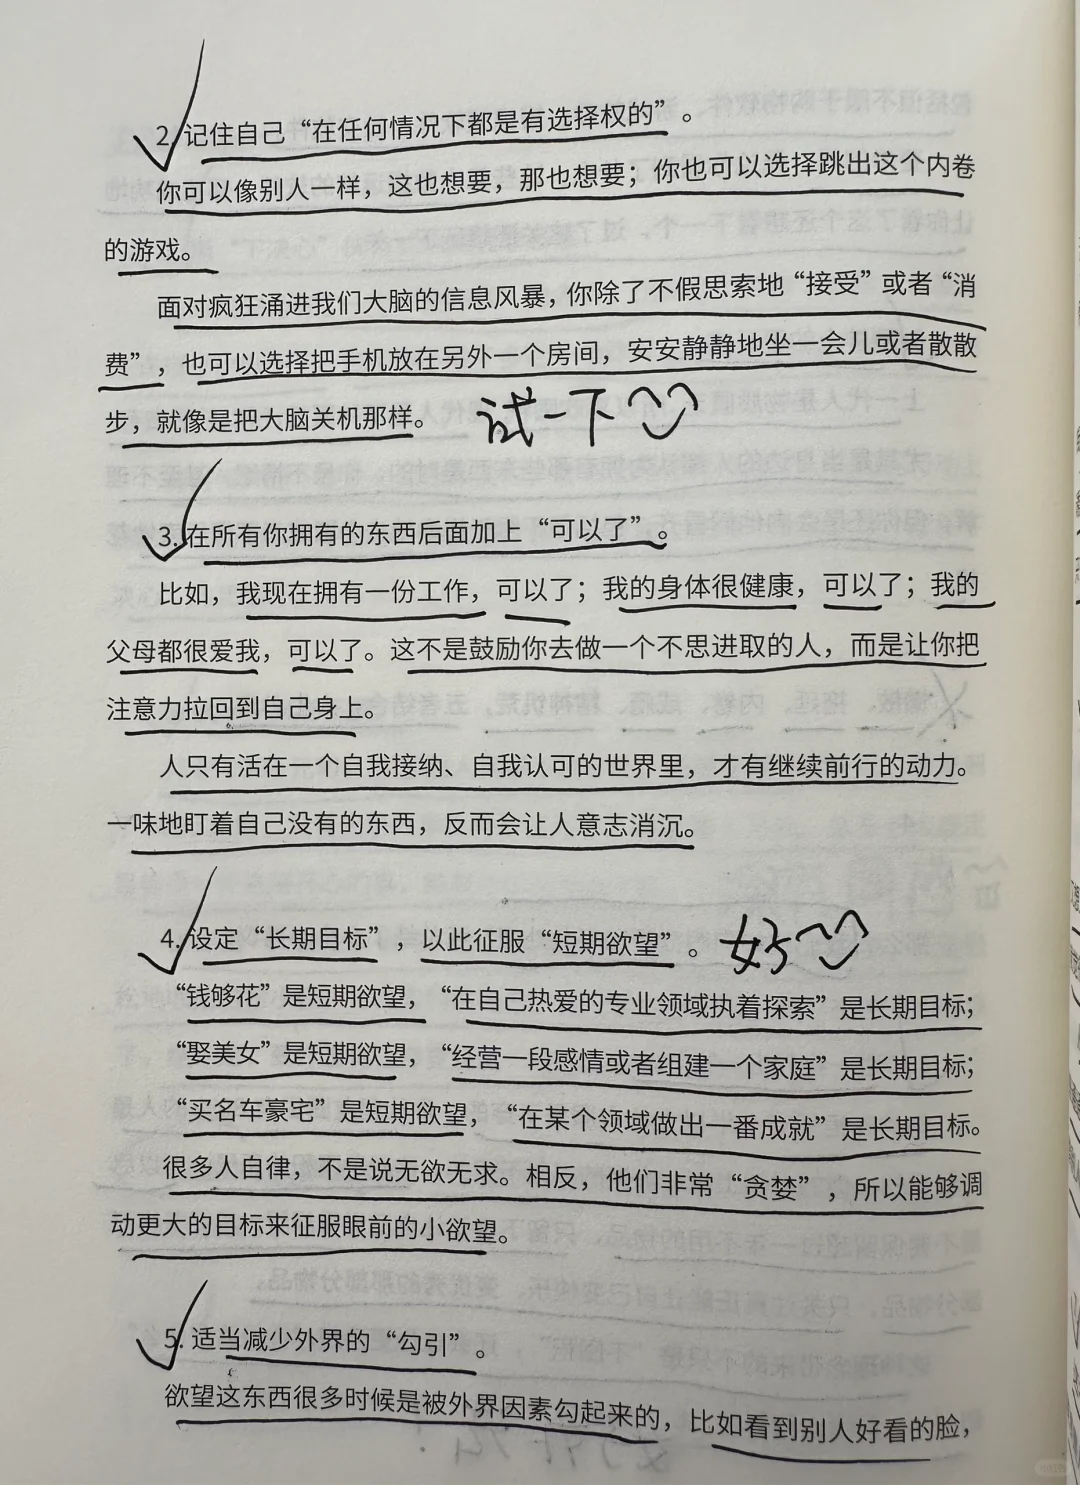 2. 记住自己“在任何情况下都是有选择权的”。
你可以像别人一样，这也想要，那也想要；你也可以选择跳出这个内卷
的游戏。
面对疯狂涌进我们大脑的信息风暴，你除了不假思索地“接受”或者“消
费”，也可以选择把手机放在另外一个房间，安安静静地坐一会儿或者散散
步，就像是把大脑关机那样。 试一下
3. 在所有你拥有的东西后面加上“可以了”。
比如，我现在拥有一份工作，可以了；我的身体很健康，可以了；我的
父母都很爱我，可以了。这不是鼓励你去做一个不思进取的人，而是让你把
注意力拉回到自己身上。
人只有活在一个自我接纳、自我认可的世界里，才有继续前行的动力。
一味地盯着自己没有的东西，反而会让人意志消沉。
4. 设定“长期目标”，以此征服“短期欲望”。 好
“钱够花”是短期欲望，“在自己热爱的专业领域执着探索”是长期目标；
“娶美女”是短期欲望，“经营一段感情或者组建一个家庭”是长期目标；
“买名车豪宅”是短期欲望，“在某个领域做出一番成就”是长期目标。
很多人自律，不是说无欲无求。相反，他们非常“贪婪”，所以能够调
动更大的目标来征服眼前的小欲望。
5. 适当减少外界的“勾引”。
欲望这东西很多时候是被外界因素勾起来的，比如看到别人好看的脸，
小红书